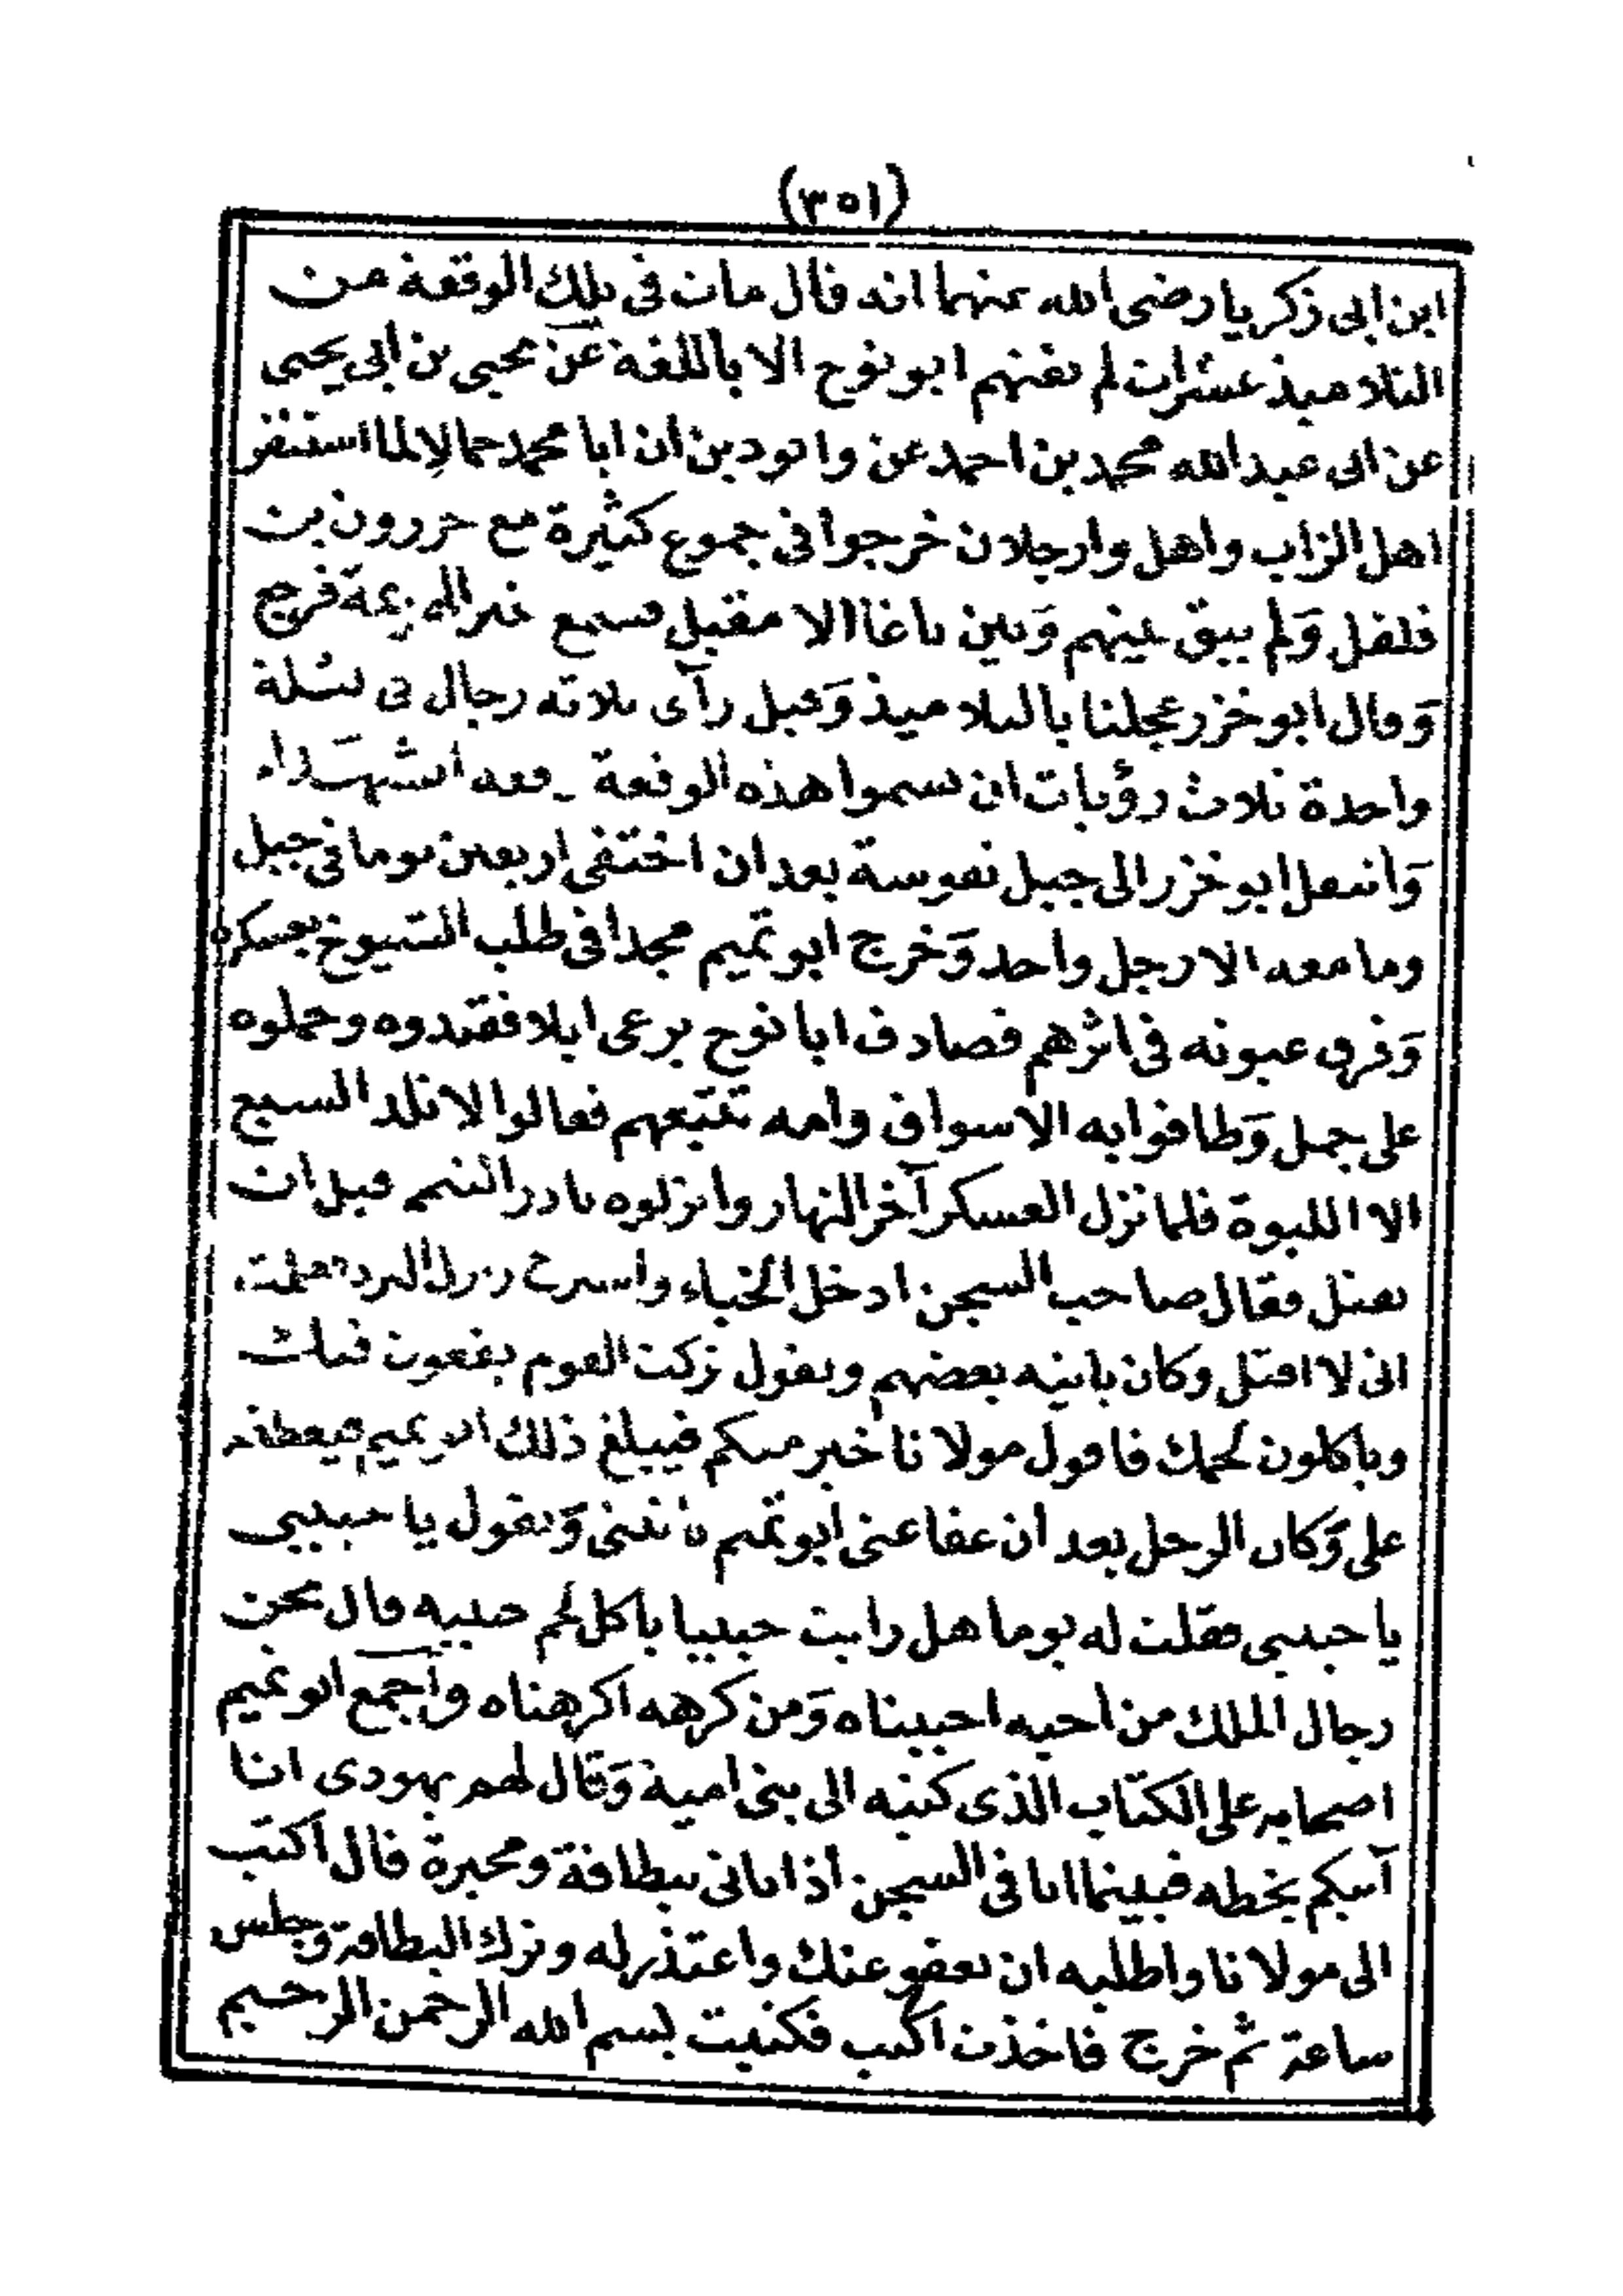 (٣٥١)
ابن ابى زكريا رضى الله عنهما انه قال مات فى تلك الوقعة من
التلاميذ عشرات لم نفتهم ابو نوح الا باللغة عن يحيى بن ابى يحيى
عن ابى عبد الله محمد بن احمد عن واتودين ان ابا محمد جمالا لما استنفر
اهل الزاب واهل وارجلان خرجوا فى جموع كثيرة مع خررون بن
فلفل وَلم يبق بينهم وَبين باغا الا مقيل فسمع خبر الهزيمة فرجع
وَقال ابو خزر عجلنا بالتلاميذ وَقيل رآى ثلاثة رجال فى ليلة
واحدة ثلاث رؤيات ان نسموا هذه الوقعة وقعة الشهَداء
وَانتقل ابو خزر الى جبل نفوسة بعد ان اختفى اربعين يوما فى جبل
وما معه الا رجل واحد وَخرج ابو تميم مجدا فى طلب الشيوخ بعسكره
وَفرق عيونه فى اثرهم فصادف ابا نوح يرعى ابلا فقيدوه وحملوه
على جمل وَطافوا به الاسواق وامه تتبعهم فقالوا لا تلد السبع
الا اللبوة فلما نزل العسكر آخر النهار وانزلوه بادر النسم قبل ان
يقتل فقال صاحب السجن ادخل الخباء واستتر ونزل البرد فعلمت
انى لا اقتل وكان ياتيه بعضهم ويقول تركت القوم يقعون فيك
وياكلون لحمك فاقول مولانا خير منكم فيبلغ ذلك ابو تميم فيعطفه
على وَكان الرجل بعد ان عفا عنى ابو تميم ياتينى وَيقول يا حبيبى
يا حبيبى فقلت له يوما هل رايت حبيبا ياكل لحم حبيبه قال نحن
رجال الملك من احبه احببناه وَمن كرهه اكرهناه وَاجمع ابو تميم
اصحابه على الكتاب الذى كتبه الى بنى امية وَقال لهم يهودى انا
آتيكم بخطه فبينما انا فى السجن اذ اتانى ببطاقة ومحبرة قال اكتب
الى مولانا واطلبه ان يعفو عنك واعتذر له وترك البطاقة وجلس
ساعة ثم خرج فاخذت اكتب فكتبت بسم الله الرحمن الرحيم